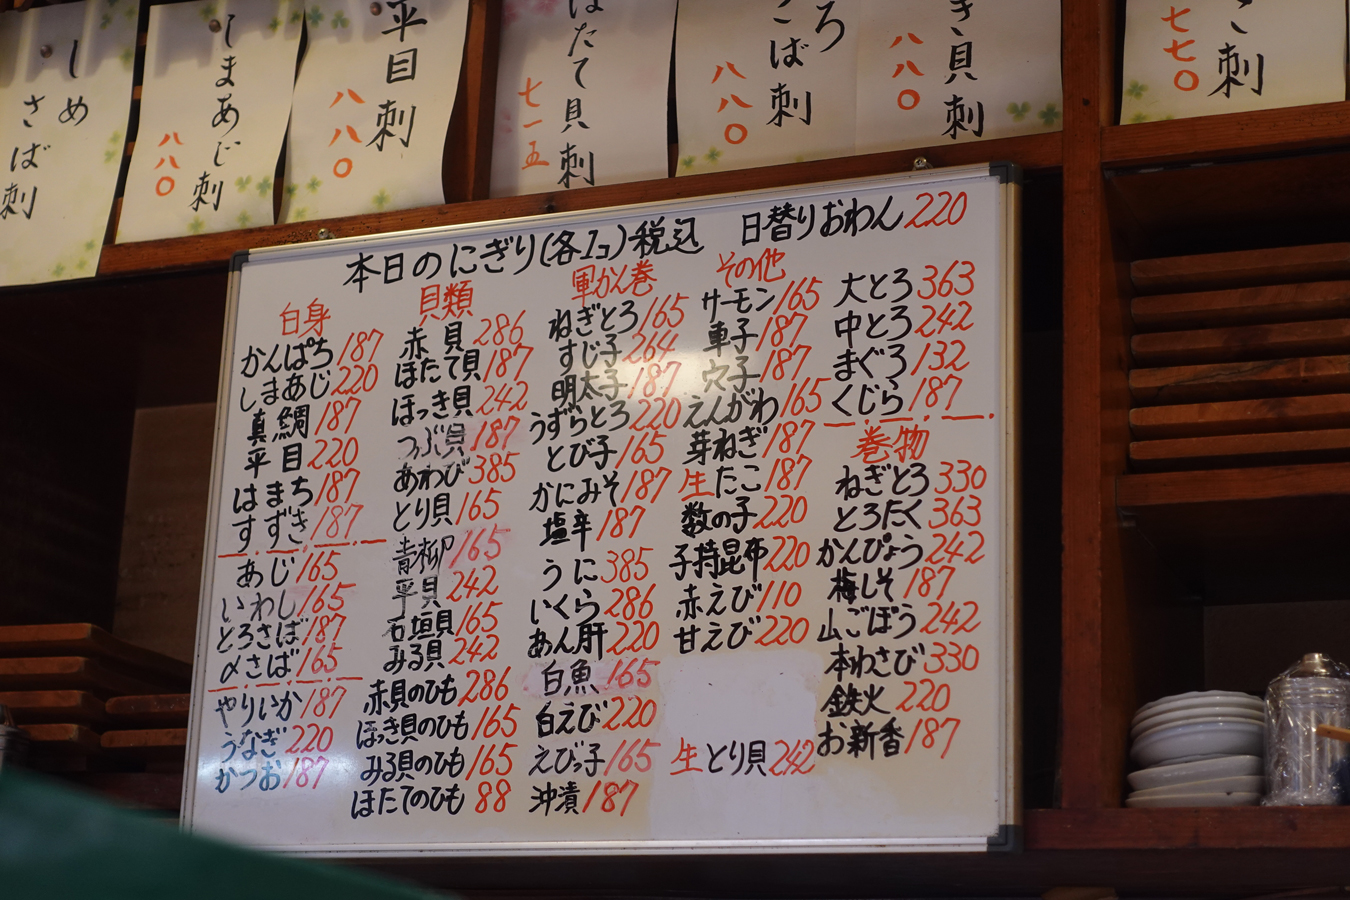 しめ
さば刺
しまあじ刺
八八〇
平目刺
八八〇
ほたて貝刺
七一五
ろ
こば刺
八八〇
き貝刺
八八〇
こ刺
七七〇
本日のにぎり(各1コ)税込
日替りおわん220
白身
かんぱち187
しまあじ220
真鯛187
平目220
はまち187
すずき187
あじ165
いわし165
とろさば187
〆さば165
やりいか187
うなぎ220
かつお187
貝類
赤貝286
ほたて貝187
ほっき貝242
つぶ貝187
あわび385
とり貝165
青柳165
平貝242
石垣貝165
みる貝242
赤貝のひも286
ほっき貝のひも165
みる貝のひも165
ほたてのひも88
軍かん巻
ねぎとろ165
すじ子264
明太子187
うずらとろ220
とび子165
かにみそ187
塩辛187
うに385
いくら286
あん肝220
白魚165
白えび220
えびっ子165
沖漬187
その他
サーモン165
車子187
穴子187
えんがわ165
芽ねぎ187
生たこ187
数の子220
子持昆布220
赤えび110
甘えび220
生とり貝242
大とろ363
中とろ242
まぐろ132
くじら187
巻物
ねぎとろ330
とろたく363
かんぴょう242
梅しそ187
山ごぼう242
本わさび330
鉄火220
お新香187